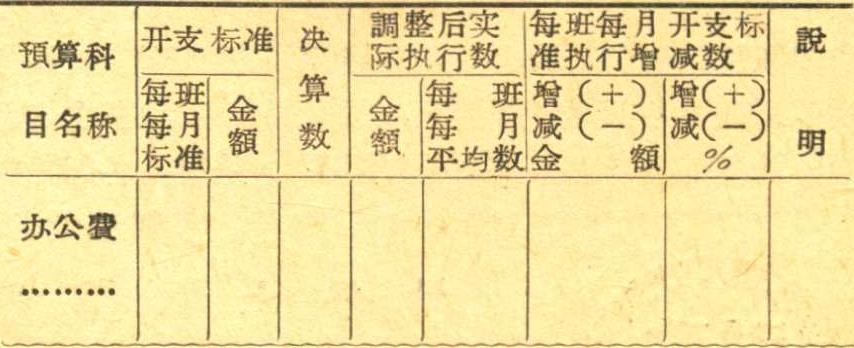 預算科目名称
开支标准
每班每月标准
金額
决算数
調整后实际执行数
金額
每班每月平均数
每班每月开支标准执行增减数
增(+)减(-)金額
增(+)减(-)%
說明
办公費
………